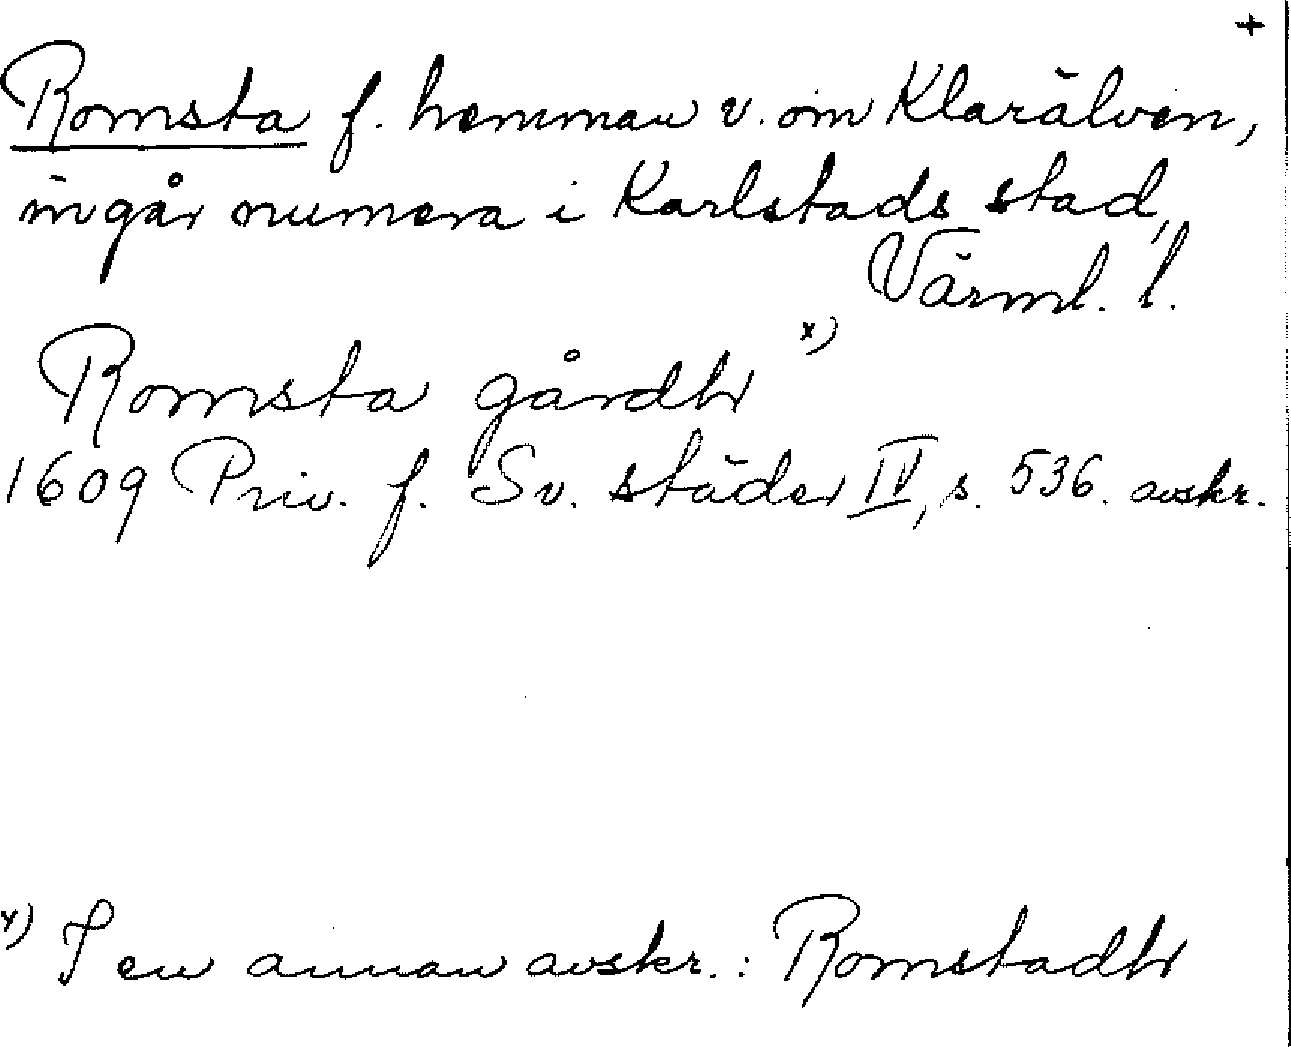 +
Romsta f. hemman v. om Klarälven,
ingår numera i Karlstads stad,
Värml. l.
Romsta gårdh x)
1609 Priv. f. Sv. städer IV, s. 536. avskr.
x) I en annan avskr.: Romstadh